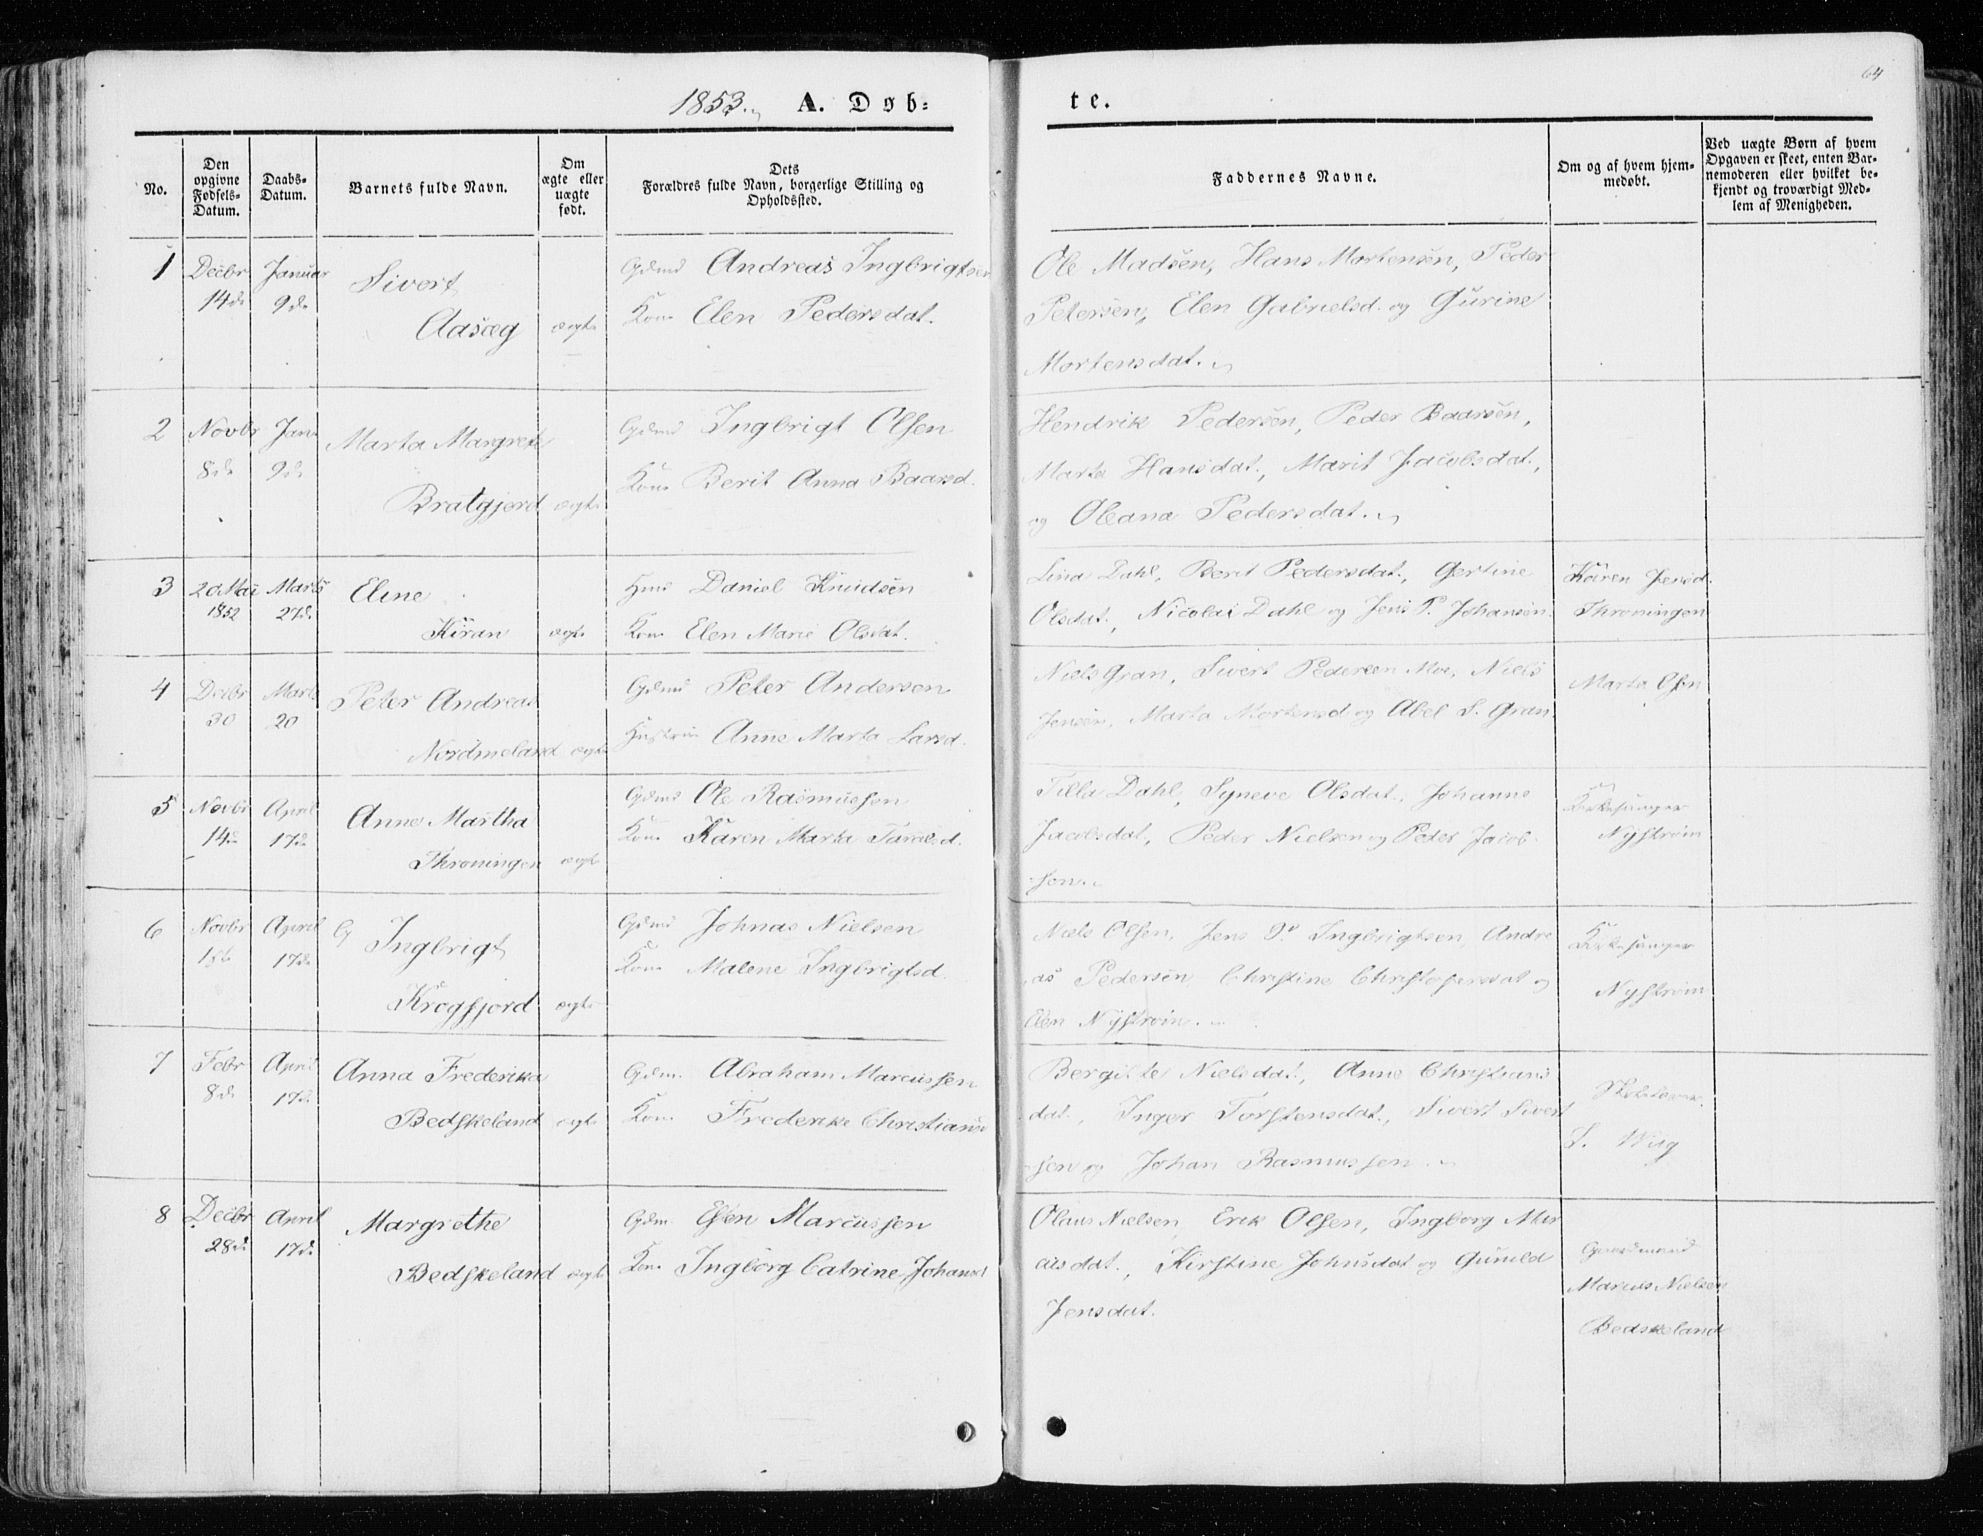 64
1853. A. Døb-
te.
No.
Den opgivne Fødsels-Datum.
Daabs-Datum.
Barnets fulde Navn.
Om ægte eller uægte født.
Dets Forældres fulde Navn, borgerlige Stilling og Opholdssted.
Faddernes Navne.
Om og af hvem hjem-medøbt.
Ved uægte Børn af hvem Opgaven er skeet, enten Bar-nemoderen eller hvilket be-kjendt og troværdigt Med-lem af Menigheden.
1 Decbr Januar Sivert Gdmd Andreas Ingbrigtsen
14de 9de Aasæg ægte Kone Elen Pedersdat.
Ole Madsen, Hans Mortensen, Peder
Petersen, Elen Gabrielsd. og Gurine
Mortensdat.
2 Novbr Jan. Marta Margrete Gdmd Ingbrigt Olsen
8de 9de Bratgjerd ægte Kone Berit Anna Baarsd.
Hendrik Pedersen, Peder Baarsen,
Marta Hansdat., Marit Jacobsdat.,
og Oleana Pedersdat.
3 2d Mai Marts Eline Hmd Daniel Knudsen
1852 27de Kiran ægte Kone Elen Marie Olsdat.
Lina Dahl, Berit Pedersdat., Gertine
Olsdat., Nicolai Dahl og Jens P. Johansen.
Karen Jensd.
Throningen
4 Decbr Marts Peter Andreas Gdmd Peter Andersen
30 20 Nordmeland ægte Hustrue Anne Marta Larsd.
Niels Gran, Sivert Pedersen Moe, Niels
Jensen, Marta Mortensd og Abel S. Gran.
Marta Olsen
5 Novbr April Anne Martha Gdmd Ole Rasmussen
14de 17de Throningen ægte Kone Karen Marta Tarals d.
Tilla Dahl, Syneve Olsdat., Johanne
Jacobsdat, Peder Nielsen og Peter Jacob-
sen.
Kirkesanger
Nystrøm
6 Novbr April Ingbrigt Gdmd Johnas Nielsen
17de Krogfjord ægte Kone Malene Ingbrigtsd.
Niels Olsen, Jens P. Ingbrigtsen, Andre
as Pedersen, Christine Christophersdat og
Elen Nystrøm.
Kirkesanger
Nystrøm
7 Febr April Anna Frederika Gdm. Abraham Marcussen
8de 17de Bedskeland ægte Kone Frederike Christiansd
Bergitte Nielsdat., Anne Christians
dat., Inger Torstensdat., Sivert Sivert
sen og Johan Rasmussen.
S. Wiig
8 Decbr April Margrethe Gdm. Esten Marcussen
28de 17de Bedskeland ægte Kone Ingborg Catrine Johansd
Olaus Nielsen, Erik Olsen, Ingborg Mar
cusdat., Kirstine Johnsdat og Gunild
Jensdat.
Gaardmand
Marcus Nielsen
Bedskeland